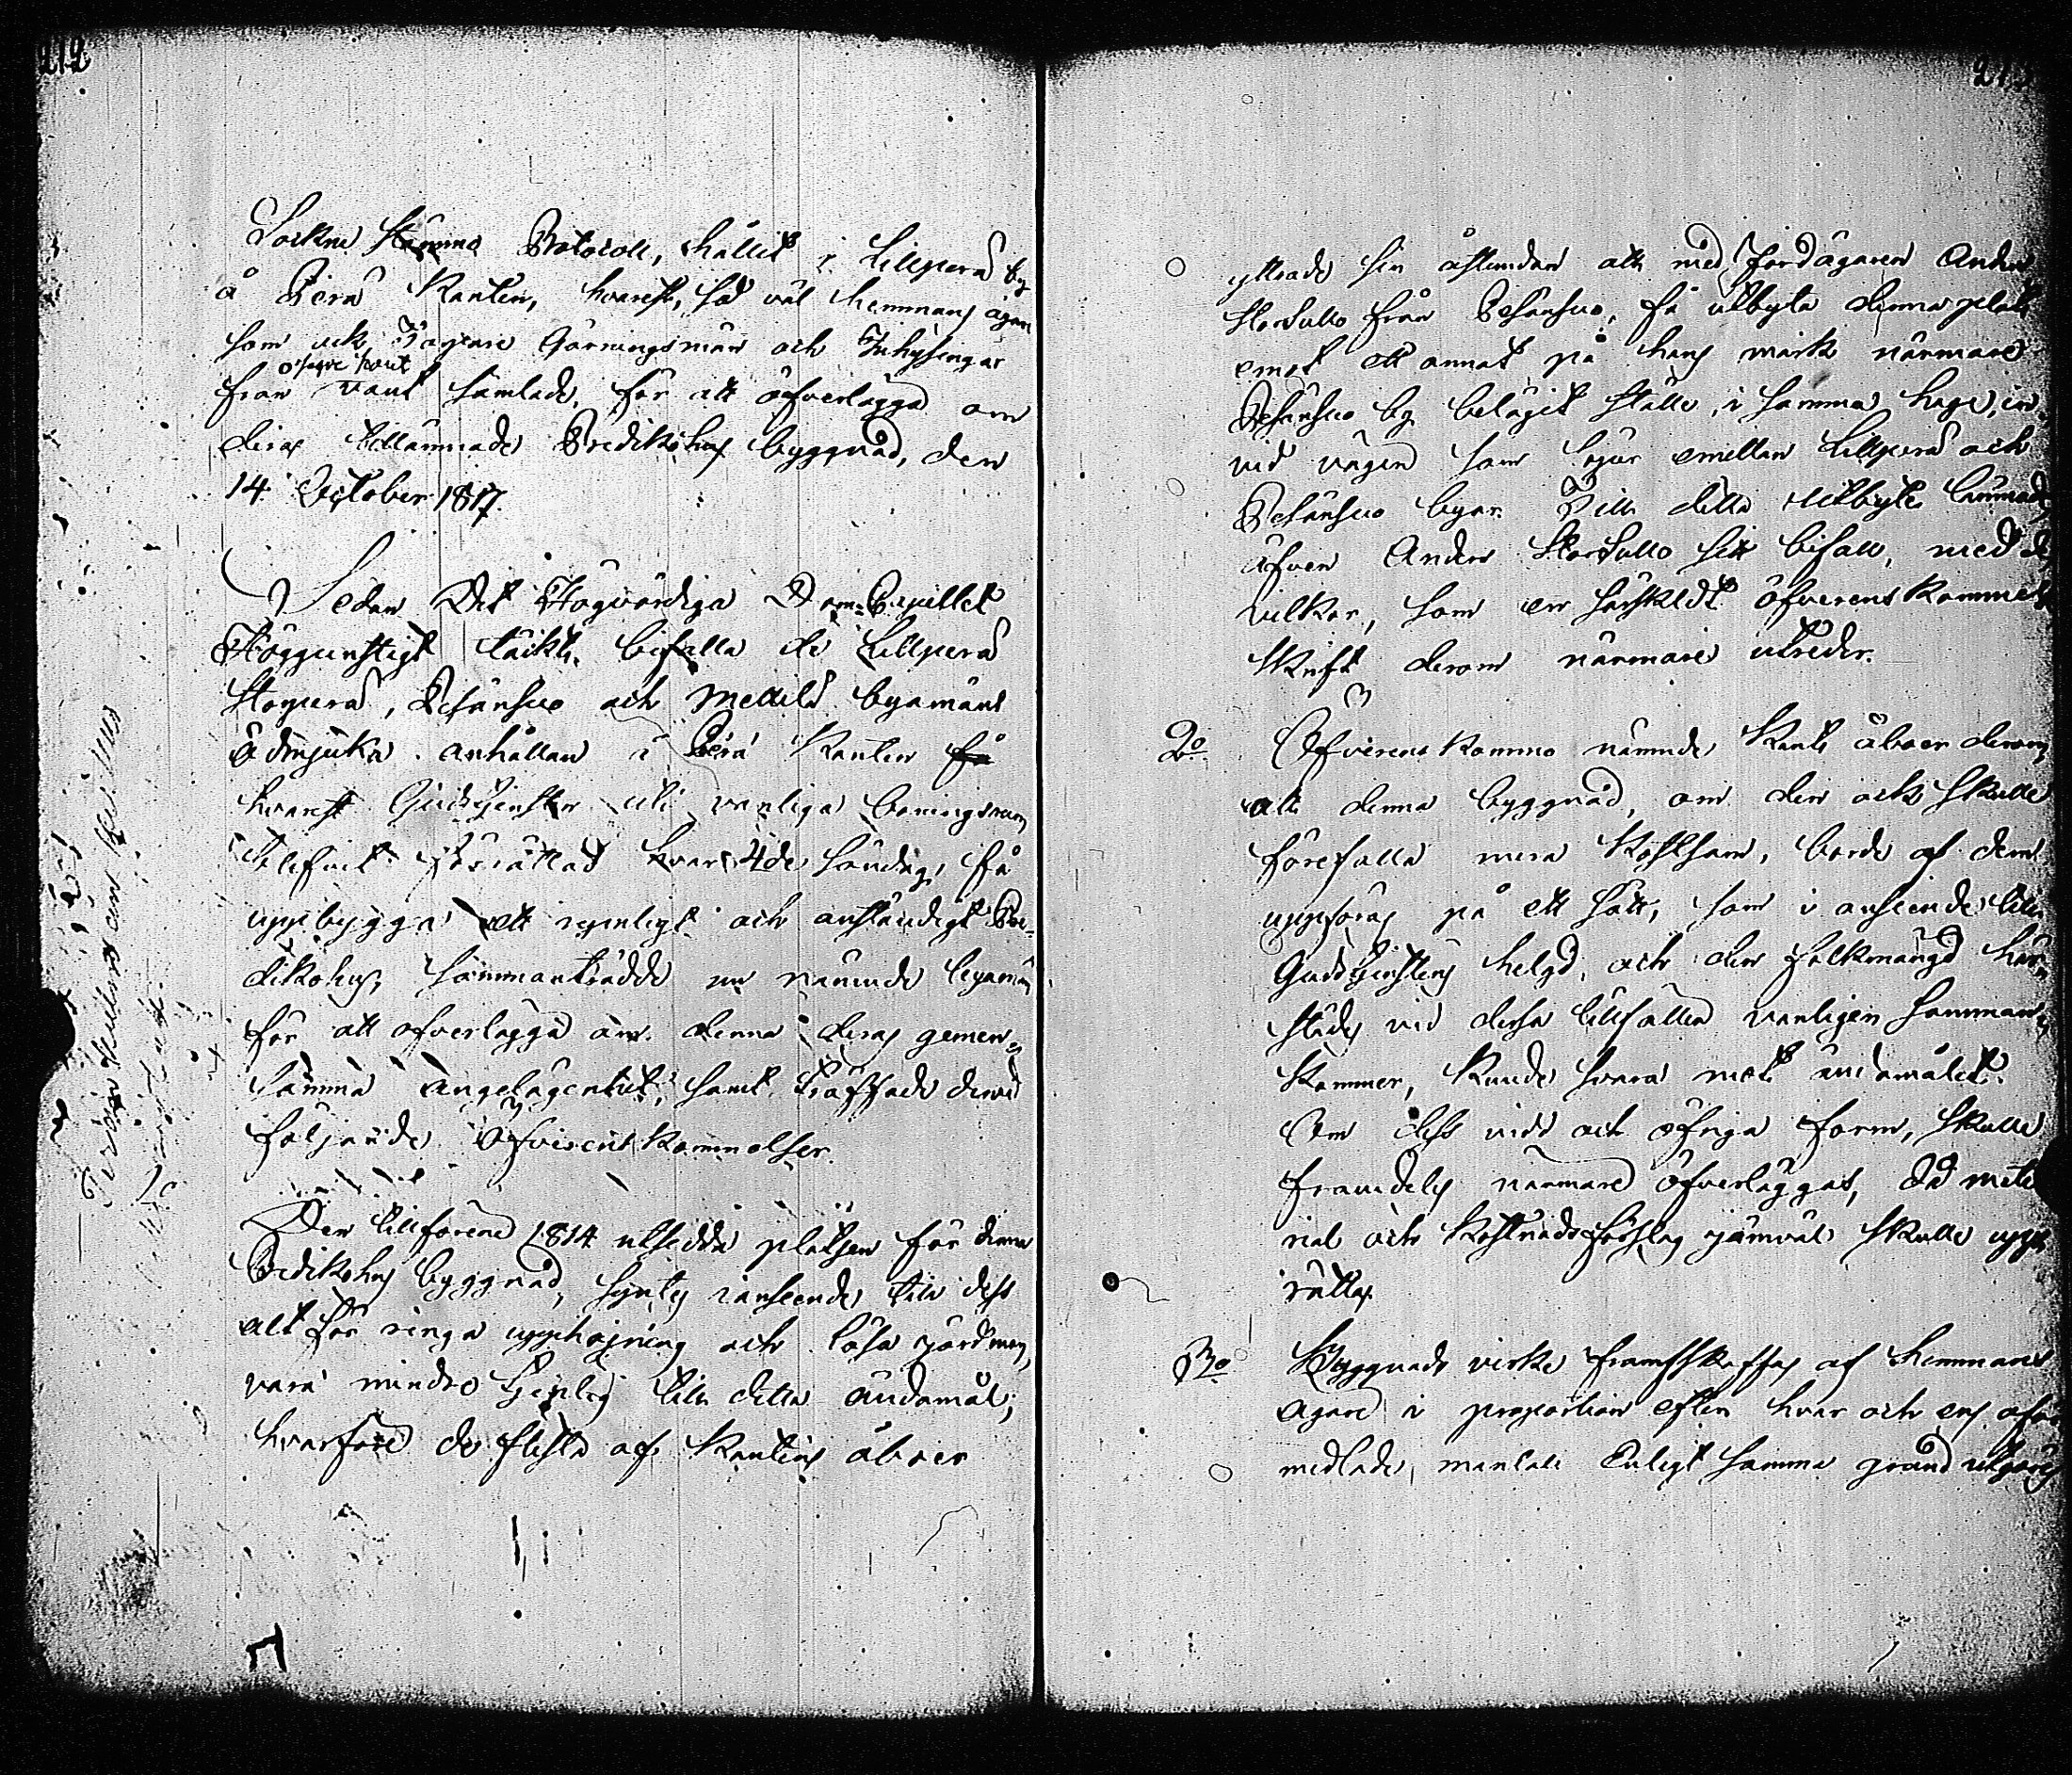 212
Sockne Stämma Protocoll, hållit i Lillperå by
å Perå Kanten, hvarest, så väl hemmans ägare
som ock Torpare Gärningsmän och Inhysingar
från ofvannämde Kant samlade, för att öfverlägga om
deras tillämnade Predikohus byggnad, den
14 October 1817.
Sedan Det Högvördiga Dom-Capitlet
Höggunstigt täckts bifalla de Lillperå
Storperå, Pesänsuo och Mellilä byamäns
ödmjuka anhållan i Perå Kanten få
hvarest Gudstjensten uti vanliga boningsrum
blifvit förrättad hvar 4de söndag, få
uppbygga ett egenligt och anständigt Pre-
dikohus, sammanträdde nu nämnde byamän
för att öfverlägga om denna deras gemen-
samma angelägenhet, samt träffade dervid
följande Öfverenskommelser.
Den tillförene 1814 utsedda platsen för denna
Predikohus byggnad, syntes i anseende till dess
alt för ringa upphöjning och lösa jordmon,
vara mindre tjenlig till detta ändamål;
hvarföre de flesta af Kantens åboer
213
yttrade sin åstundan att med Jordägaren Anders
Storsullo från Pesänsuo, få utbyta denna plats
emot ett annat på hans mark närmare
Pesänsuo by beläget ställe, i samma hage, in-
vid vägen som löper emellan Lillperå och
Pesänsuo byar. Till detta utbyte lemnade
äfven Anders Storsullo sitt bifall, med de
vilkor, som en särskildt öfverenskommelse
skrift derom närmare utreder.
2o Öfverenskommo nämnde Kants åboer derom,
att denna byggnad, om den ock skulle
förefalla mera kostsam, borde af dem
uppföras på ett sätt, som i anseende till
Gudstjenstens helgd, och den folkmängd här-
städes vid dessa tillfällen vanligen samman-
kommer, kunde svara mot ändamålet.
Om dess vidd och öfriga form, skulle
framdeles närmare öfverläggas, då mate-
rial och kostnadsförslag jämväl skulle upp-
rättas.
3o Byggnads virke framskaffas af hemmans
ägare i proportion efter hvar och ens oför-
medlade mantal. Enligt samma grund utgöres